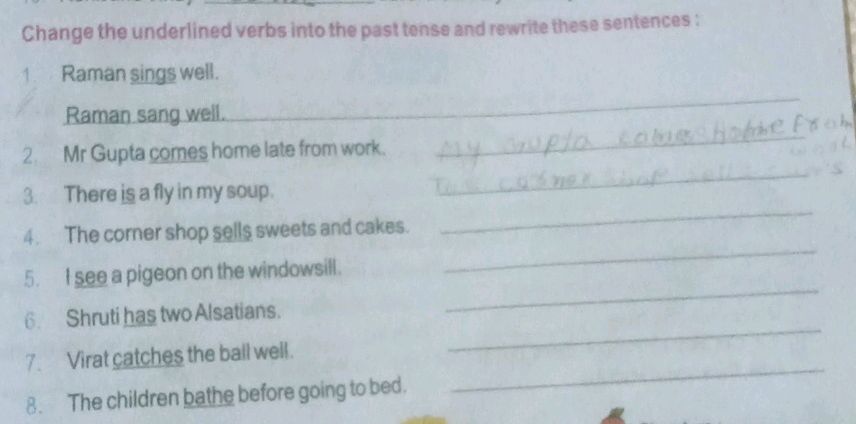 Change the underlined verbs into the past tense and rewrite these sentences :
1. Raman sings well.
Raman sang well.
2. Mr Gupta comes home late from work.
My Gupta comes home from
3. There is a fly in my soup.
4. The corner shop sells sweets and cakes.
5. I see a pigeon on the windowsill.
6. Shruti has two Alsatians.
7. Virat catches the ball well.
8. The children bathe before going to bed.